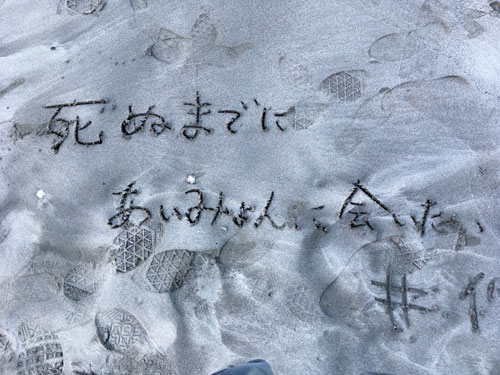 死ぬまでに
あいみょんに会いたい
#1